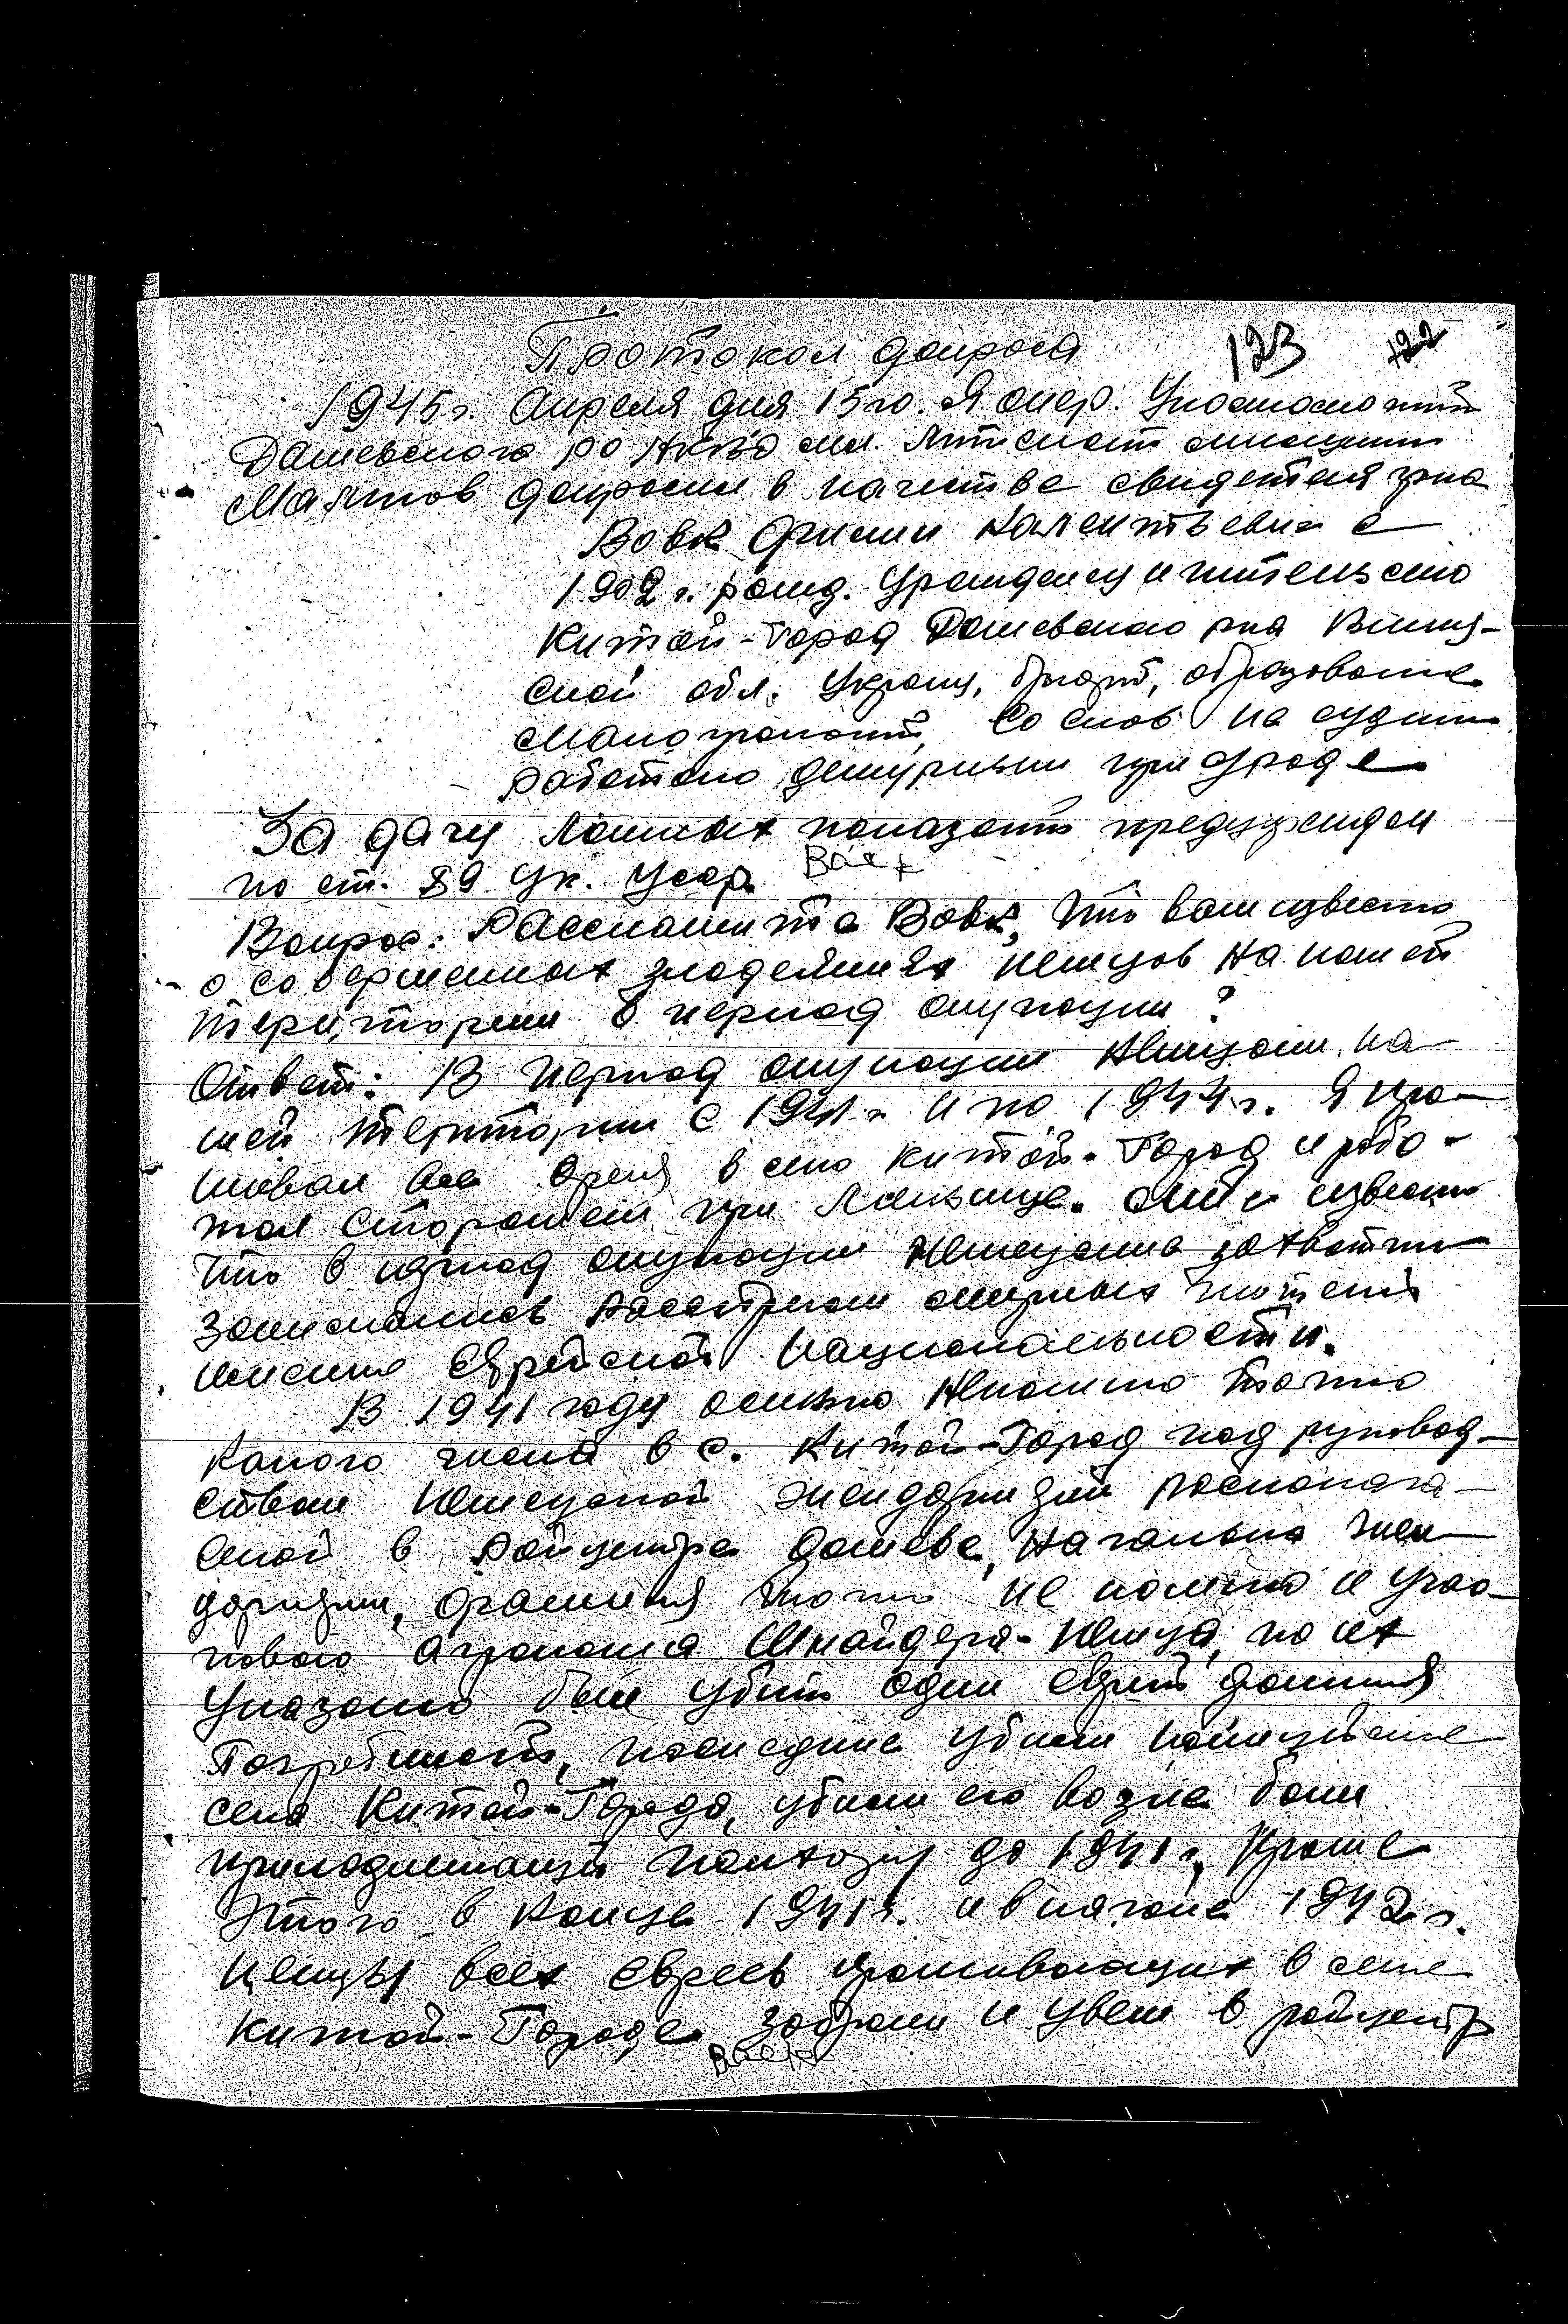 Протокол допроса 123 122
1945г. Апреля дня 15го. Я опер. Уполномочений
Дашевского РО НКВД мл. лейтенант милиции
допросил в качестве свидетеля гр-на
Вовк
1902 г. рожд. Урожденец и житель село
Китай-Город Дашевского р-на Винниц-
ской обл. Украинец, образование
малограмотний, со слов не судим
работаю дежурным при
За дачу ложных показаний предупрежден
по ст. 89 Ук. Усср. Вовк
Вопрос: Расскажите Вовк, что вам известно
о совершенных злодеяниях немцов на нашей
територии в период окупации?
Ответ: В период окупации немцами на-
шей територии с 1941г. и по 1944г. Я про-
живал все время в село Китай-Город и робо-
тал сторожем при. мне известно
что в период окупации немецкие захватчики
занимались расстрелом мирных жителей
именно Еврейской национальности.
В 1941 году осенью непомню точно
какого числа в с. Китай-Город под руковод-
ством немецкой жандармерии располога-
емой в райцентре Дашеве, начальна жан-
дармерии, фамилия точно не помню и учас-
кового агронома Шнайдера-немца, по их
указанию был убит один еврей фамилия
последние убили
села Китай-Города, убили его возле бани
принадлежащей колхозу до 1941г., Кроме
этого в конце 1941г. и в начале 1942г.
немцы всех евреев проживающих в селе
Китай-Городе забрали и увели в райцентр
Вовк